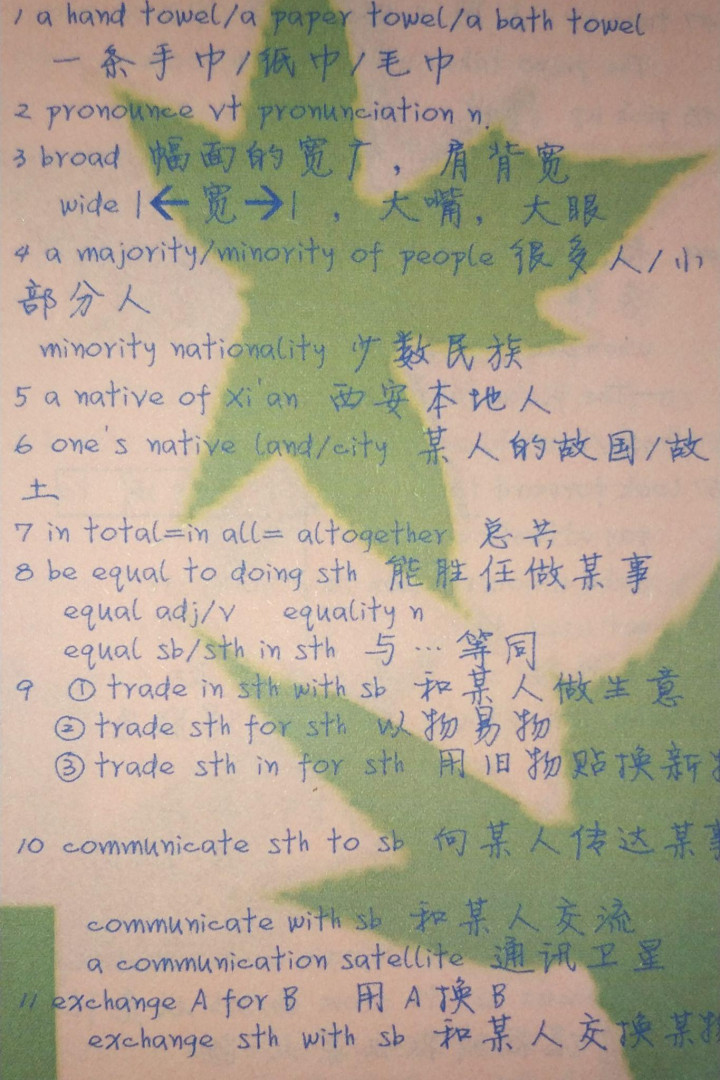 1 a hand towel/a paper towel/a bath towel
一条手巾/纸巾/毛巾
2 pronounce vt pronunciation n.
3 broad 幅面的宽广，肩背宽
wide |← 宽 →|，大嘴，大眼
4 a majority/minority of people 很多人/小
部分人
minority nationality 少数民族
5 a native of xi'an 西安本地人
6 one's native land/city 某人的故国/故
土
7 in total=in all= altogether 总共
8 be equal to doing sth 能胜任做某事
equal adj/v equality n
equal sb/sth in sth 与…等同
9 ① trade in sth with sb 和某人做生意
② trade sth for sth 以物易物
③ trade sth in for sth 用旧物贴换新物
10 communicate sth to sb 向某人传达某事
communicate with sb 和某人交流
a communication satellite 通讯卫星
11 exchange A for B 用A换B
exchange sth with sb 和某人交换某物